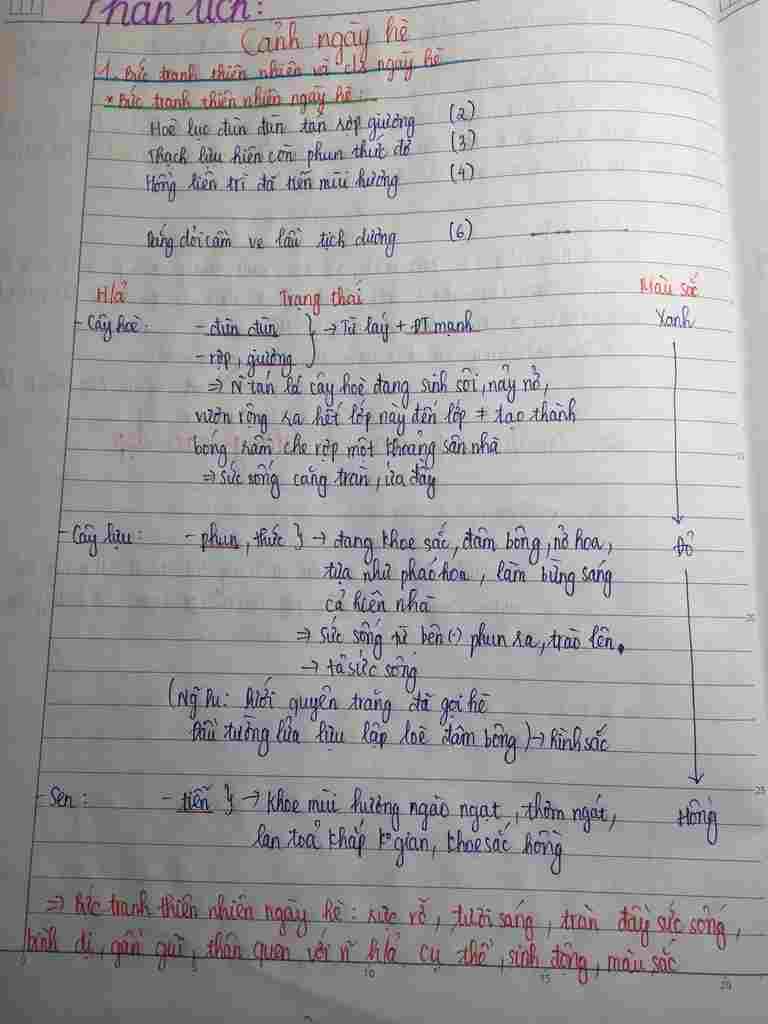 Phân tích:
Cảnh ngày hè
1. Bức tranh thiên nhiên và c/s ngày hè
* Bức tranh thiên nhiên ngày hè:
Hoè lục đùn đùn tán rợp giương (2)
Thạch lựu hiên còn phun thức đỏ (3)
Hồng liên trì đã tiễn mùi hương (4)
Dắng dỏi cầm ve lầu tịch dương (6)
H/ả Trạng thái Màu sắc
- Cây hoè: - đùn đùn } → Từ láy + ĐT mạnh Xanh
- rợp, giương
⇒ N~ tán lá cây hoè đang sinh sôi, nảy nở,
vươn rộng ra hết lớp này đến lớp ≠ tạo thành
bóng râm che rợp một khoảng sân nhà
⇒ Sức sống căng tràn, ứa đầy
- Cây lựu: - phun, thức } → đang khoe sắc, đâm bông, nở hoa, Đỏ
tựa như pháo hoa, làm bừng sáng
cả hiên nhà
⇒ Sức sống từ bên (.) phun ra, trào lên.
→ tả sức sống
(Ng~ Du: Dưới quyên trăng đã gọi hè
Đầu tường lửa lựu lập loè đâm bông) → hình sắc
- Sen: - tiễn } → Khoe mùi hương ngào ngạt, thơm ngát, Hồng
lan toả khắp k° gian, khoe sắc hồng
⇒ Bức tranh thiên nhiên ngày hè: rực rỡ, tươi sáng, tràn đầy sức sống,
bình dị, gần gũi, thân quen với n~ h/ả cụ thể, sinh động, màu sắc
10 15 20
20
25